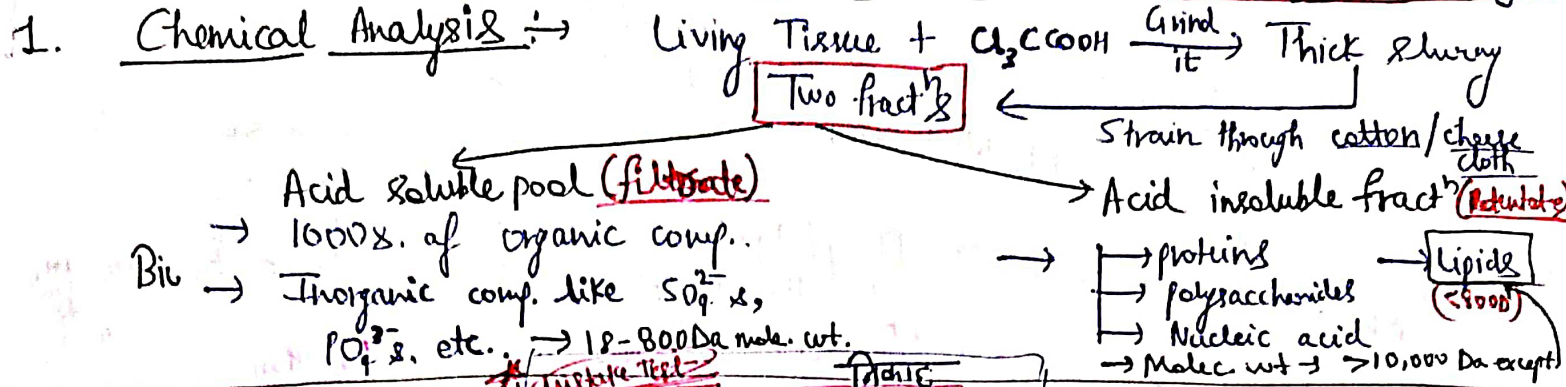 1. Chemical Analysis :→ Living Tissue + Cl₃CCOOH Grind it → Thick slurry
Two fractⁿs
Strain through cotton/cheese cloth
Acid soluble pool (filtrate)
→ 1000s. of organic comp..
Bio → Inorganic comp. like SO₄²⁻ s,
PO₄³⁻ s. etc.. → 18-800Da mole. wt.
Acid insoluble fractⁿ (Retentate)
→ → proteins → Lipids
→ polysaccharides (<800D)
→ Nucleic acid
→ Molec wt → >10,000 Da except